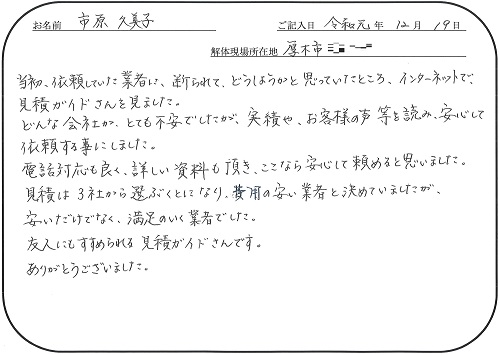 お名前 市原 久美子 ご記入日 令和元年 12月 19日
解体現場所在地 厚木市
当初、依頼していた業者に、断られて、どうしようかと思っていたところ、インターネットで、
見積ガイドさんを見ました。
どんな会社か、とても不安でしたが、実積や、お客様の声等を読み、安心して
依頼する事にしました。
電話対応も良く、詳しい資料も頂き、ここなら安心して頼めると思いました。
見積は3社から選ぶことになり、費用の安い業者と決めていましたが、
安いだけでなく、満足のいく業者でした。
友人にもすすめられる見積ガイドさんです。
ありがとうございました。